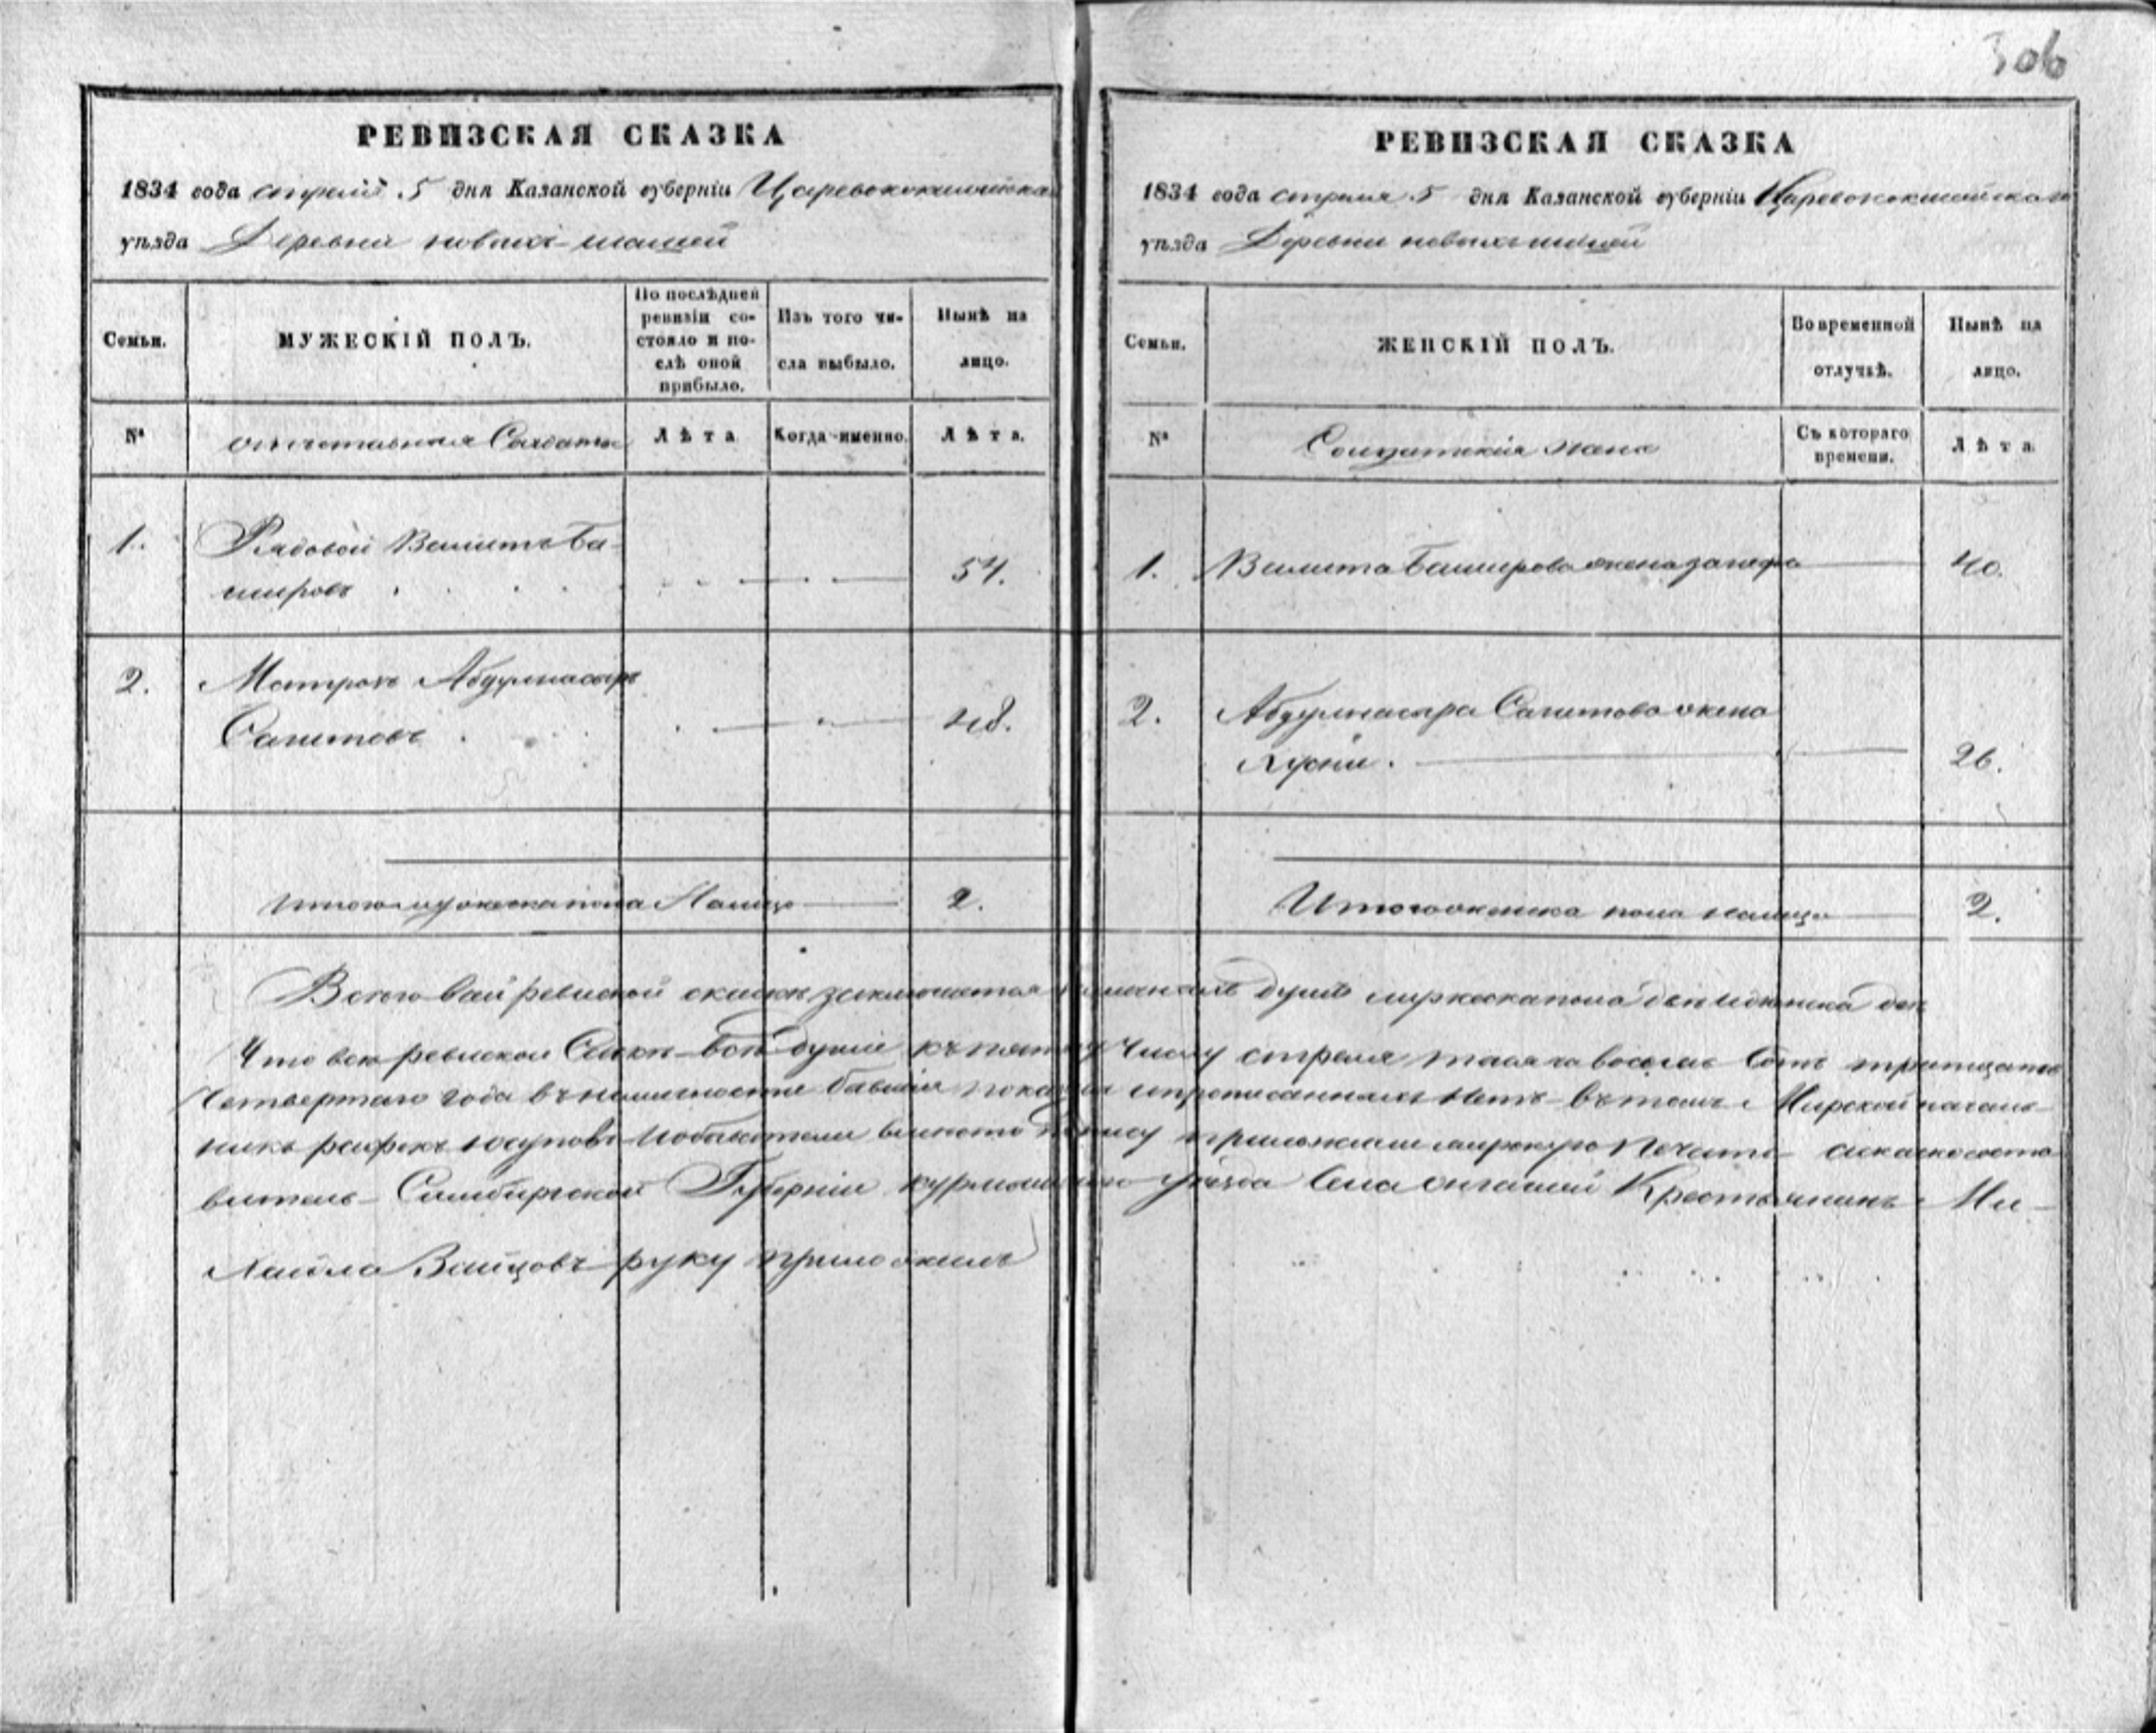 306
РЕВИЗСКАЯ СКАЗКА
1834 года апреля 5 дня Казанской губерніи Царевококшайска
уѣзда Деревни новыхъ
Семьи.
МУЖЕСКІЙ ПОЛЪ.
По послѣдней ревизіи состояло и послѣ оной прибыло.
Изъ того числа выбыло.
Нынѣ на лицо.
№
отставныя Салдаты
Лѣта
Когда именно.
Лѣта.
1. Рядовой Валитъ Ба-
шировъ 54.
2. Матрозъ Абдулнасыръ
Сагитовъ 48.
Итого мужеска пола Налицо 2.
РЕВИЗСКАЯ СКАЗКА
1834 года апреля 5 дня Казанской губерніи Царевококшайскаго
уѣзда Деревни новыхъ
Семьи.
ЖЕНСКІЙ ПОЛЪ.
Во временной отлучкѣ.
Нынѣ на лицо.
№
Солдатскія жены
Съ котораго времени.
Лѣта.
1. Валита Баширова жена 40.
2. Абдулнасыра Сагитова жена
Хусни. 26.
Итого женска пола налицо 2.
Всего в сей ревиской скаске заключается душъ мужеска пола две и женска две
Что в сей ревиской Скаске все души къ пятому Числу апреля тысяча восемь Сотъ тритцать
Четвертаго года въ наличности бывшия показаны и прописанныхъ нетъ въ томъ Мирской началь-
никъ юсуповъ и обыватели вместо приложили мирскую Печать а
витель Симбирской Губерніи курмышскаго уѣзда Села Крестьянинъ Ми-
хайла Зайцовъ руку приложилъ